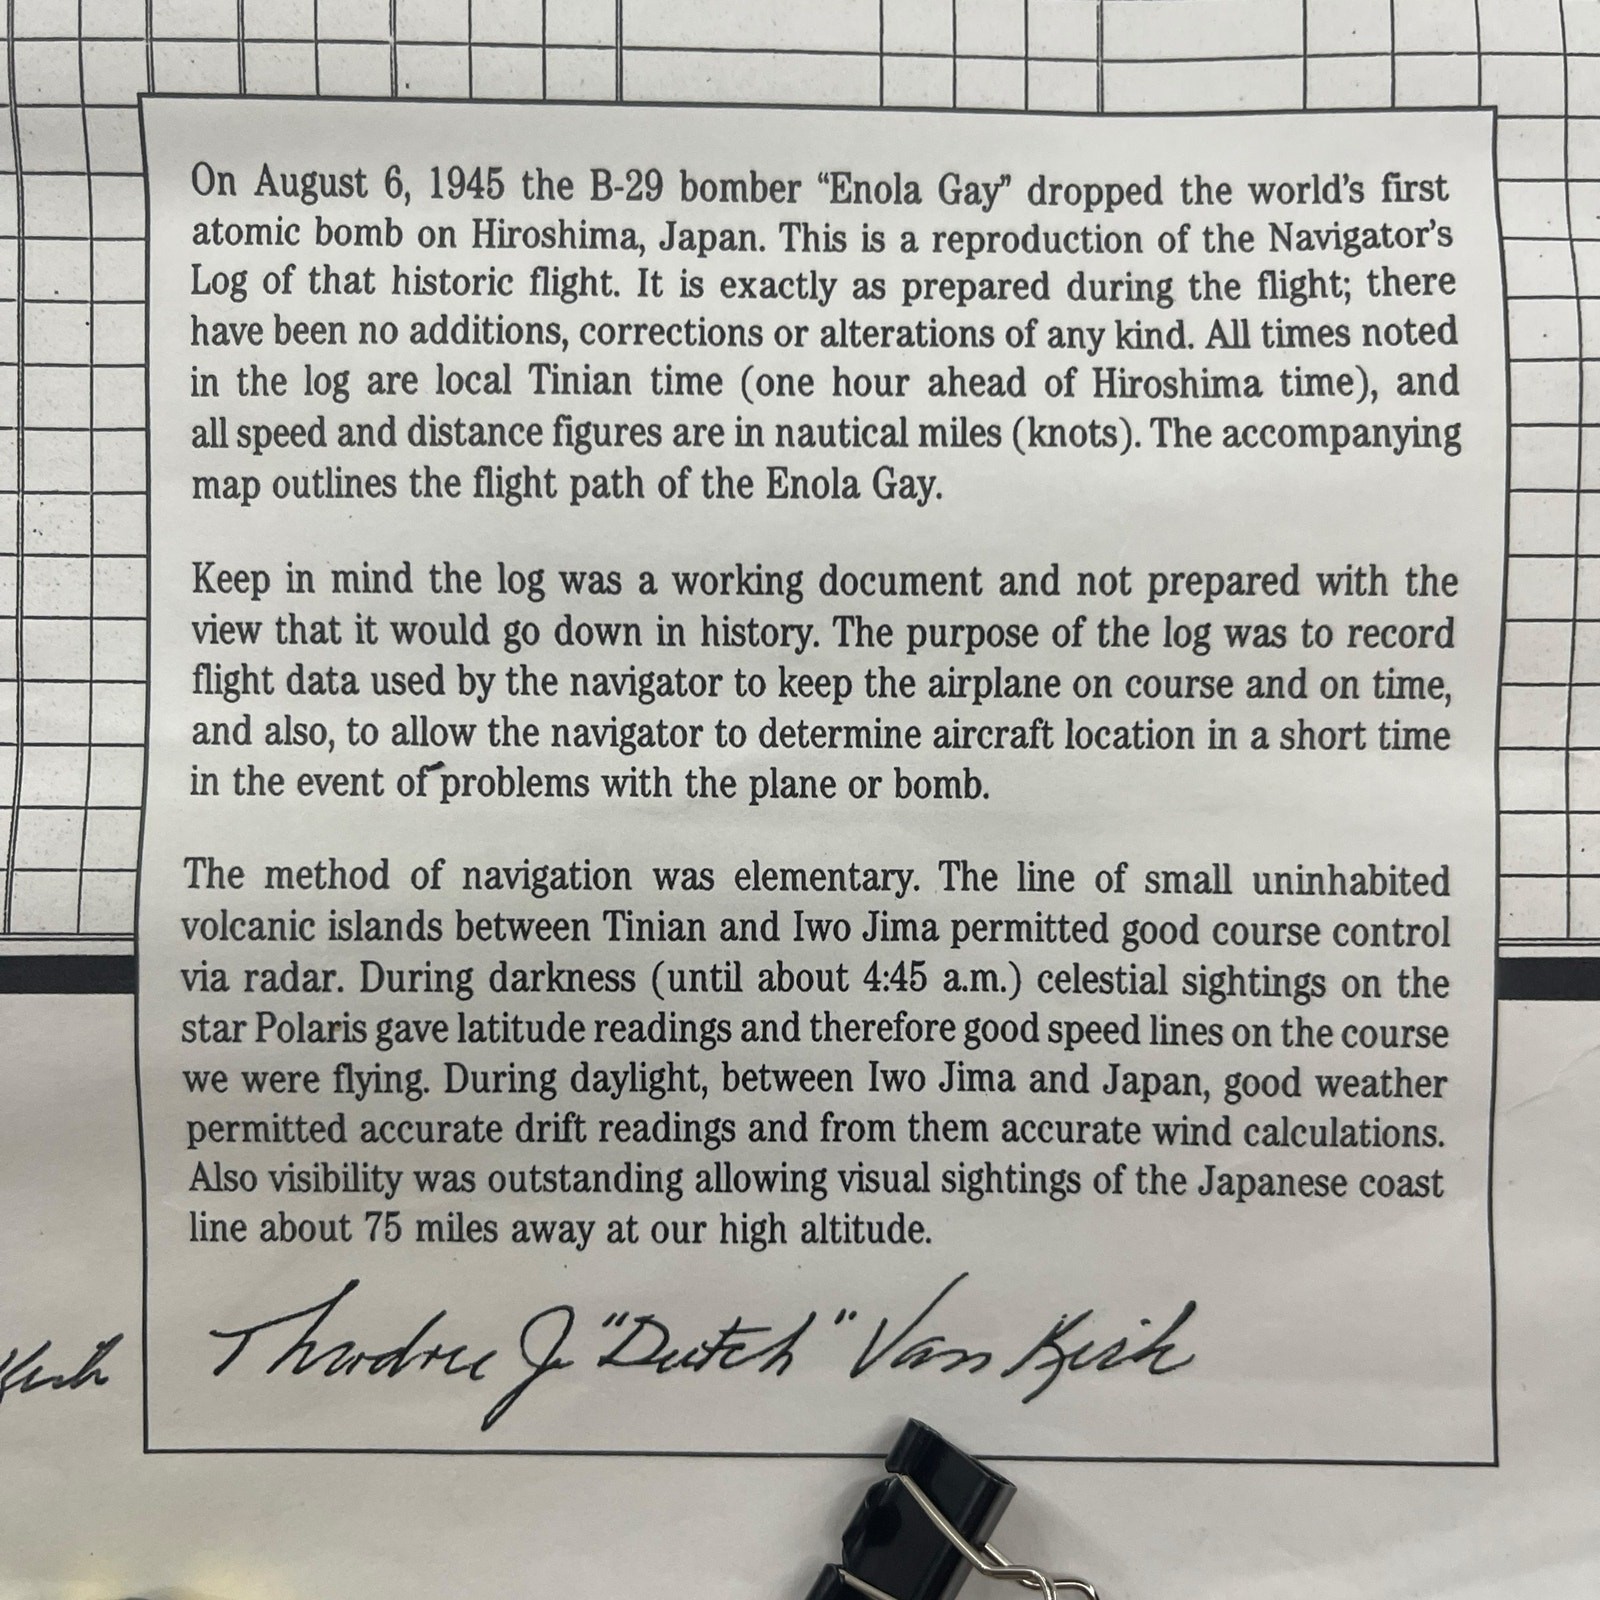 On August 6, 1945 the B-29 bomber “Enola Gay” dropped the world’s first
atomic bomb on Hiroshima, Japan. This is a reproduction of the Navigator’s
Log of that historic flight. It is exactly as prepared during the flight; there
have been no additions, corrections or alterations of any kind. All times noted
in the log are local Tinian time (one hour ahead of Hiroshima time), and
all speed and distance figures are in nautical miles (knots). The accompanying
map outlines the flight path of the Enola Gay.
Keep in mind the log was a working document and not prepared with the
view that it would go down in history. The purpose of the log was to record
flight data used by the navigator to keep the airplane on course and on time,
and also, to allow the navigator to determine aircraft location in a short time
in the event of problems with the plane or bomb.
The method of navigation was elementary. The line of small uninhabited
volcanic islands between Tinian and Iwo Jima permitted good course control
via radar. During darkness (until about 4:45 a.m.) celestial sightings on the
star Polaris gave latitude readings and therefore good speed lines on the course
we were flying. During daylight, between Iwo Jima and Japan, good weather
permitted accurate drift readings and from them accurate wind calculations.
Also visibility was outstanding allowing visual sightings of the Japanese coast
line about 75 miles away at our high altitude.
Theodore J "Dutch" Van Kirk